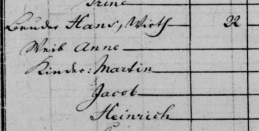 Trine
Bender Hans, Wirth 22
Weib Anne
Kinder: Martin
Jacob
Heinrich